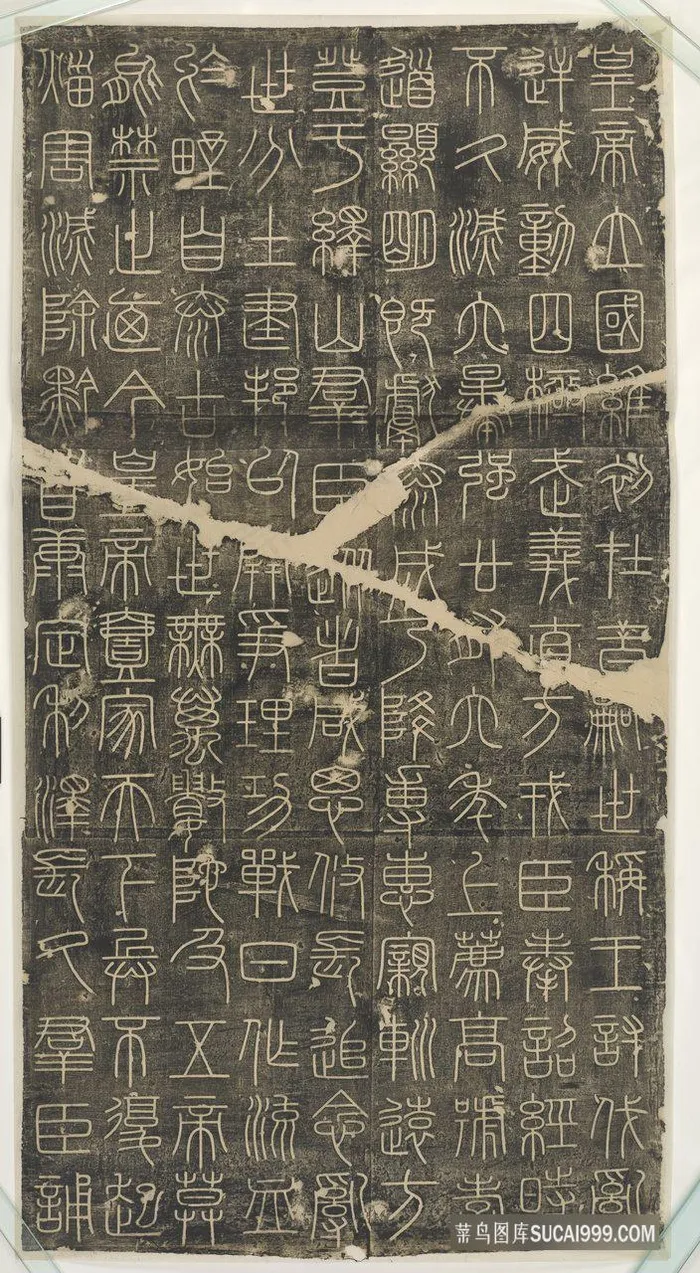 皇帝立國維初在昔嗣世稱王討伐亂
逆威動四極武義直方戎臣奉詔經時
不久滅六暴強廿有六年上薦高號孝
道顯明既獻泰成乃降專惠寴軔遠方
登于繹山群臣從者咸思攸長追念亂
世分土建邦以開爭理功戰日作流血
於野自泰古始世無萬數陀及五帝莫
能禁止廼今皇帝壹家天下兵不復起
災害滅除黔首康定利澤長久群臣誦
菜鸟图库SUCAI999.COM